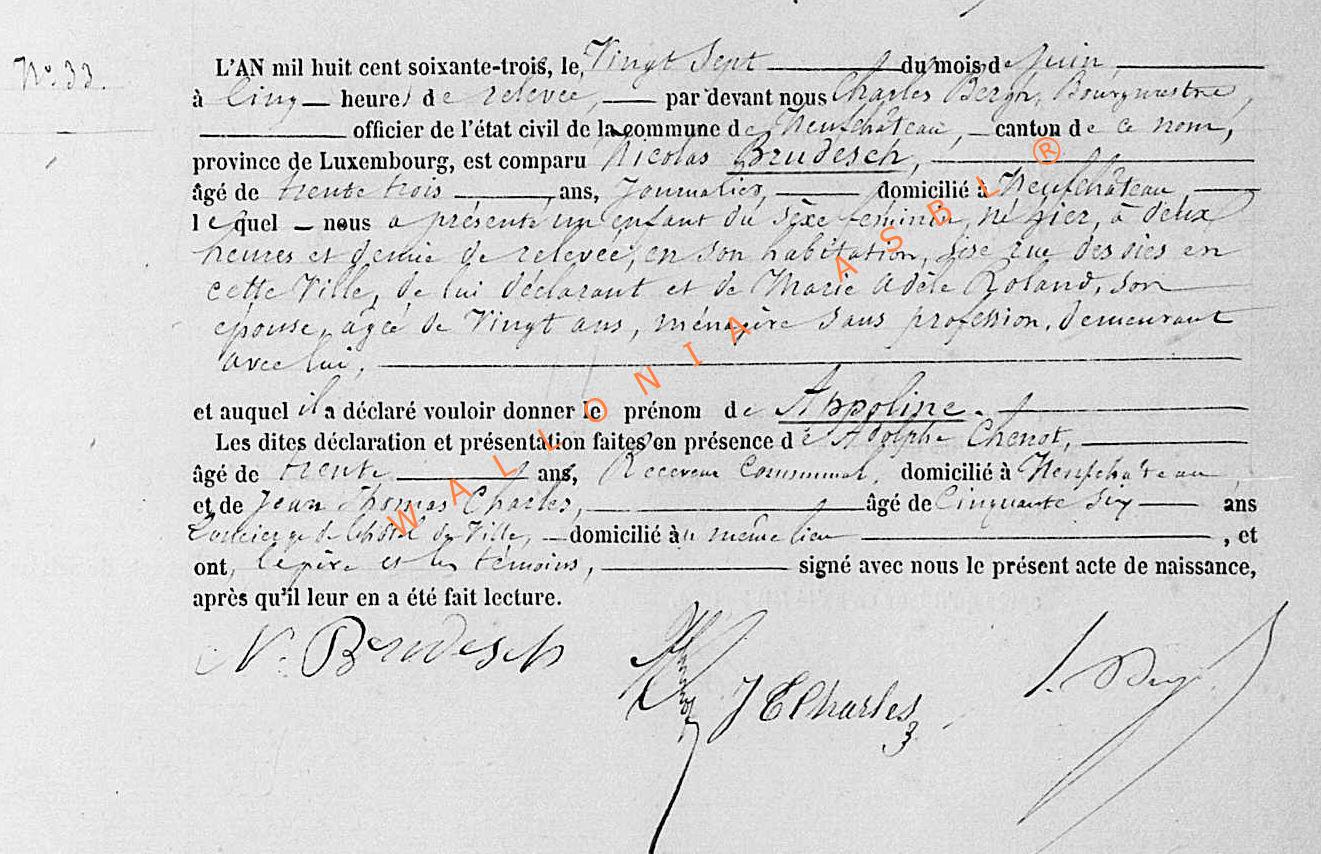 N° 33.
L'AN mil huit cent soixante-trois, le, Vingt Sept du mois de Juin,
à Cinq heures de relevée, par devant nous Charles Bergh, Bourgmestre,
officier de l'état civil de la commune de Neufchâteau, canton de ce nom,
province de Luxembourg, est comparu Nicolas Brudesch,
âgé de trente trois ans, Journalier, domicilié à Neufchâteau,
lequel nous a présenté un enfant du sèxe feminin, né hier, à deux
heures et demie de relevée, en son habitation, sise rue des oies en
cette Ville, de lui déclarant et de Marie Adèle Roland, son
épouse, agée de Vingt ans, ménagère sans profession, demeurant
avec lui,
et auquel il a déclaré vouloir donner le prénom de Appoline.
Les dites déclaration et présentation faites en présence de Adolphe Chenot,
âgé de trente ans, Receveur Communal, domicilié à Neufchâteau
et de Jean Thomas Charles, âgé de Cinquante six ans
Concierge de l'hôtel de Ville, domicilié au même lieu , et
ont, le père et les témoins, signé avec nous le présent acte de naissance,
après qu'il leur en a été fait lecture.
N. Brudesch J T Charles
WALLONIA ASBL ®